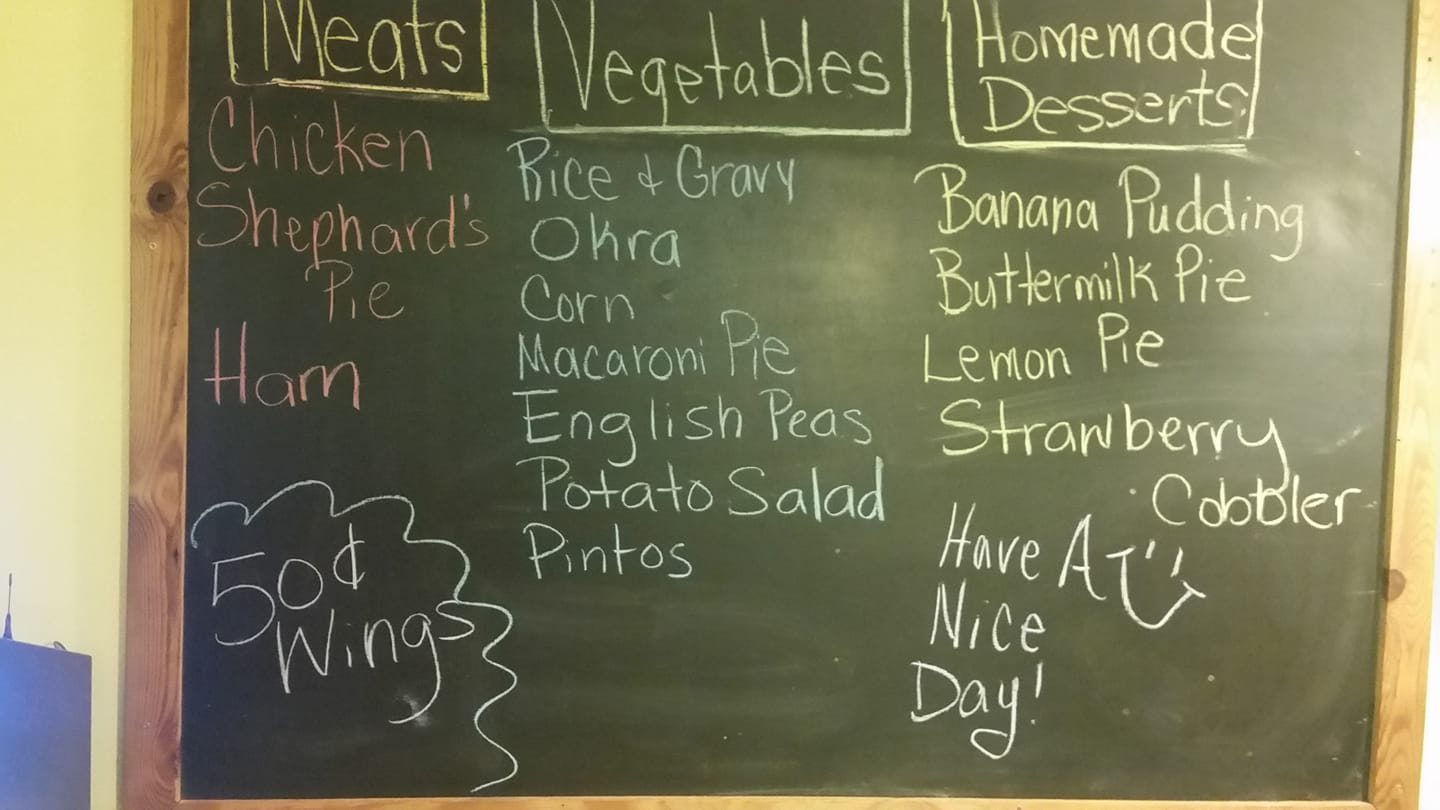 Meats
Chicken
Shephard's
Pie
Ham
50¢
Wings
Vegetables
Rice & Gravy
Okra
Corn
Macaroni Pie
English Peas
Potato Salad
Pintos
Homemade
Desserts
Banana Pudding
Buttermilk Pie
Lemon Pie
Strawberry
Cobbler
Have A
Nice
Day!